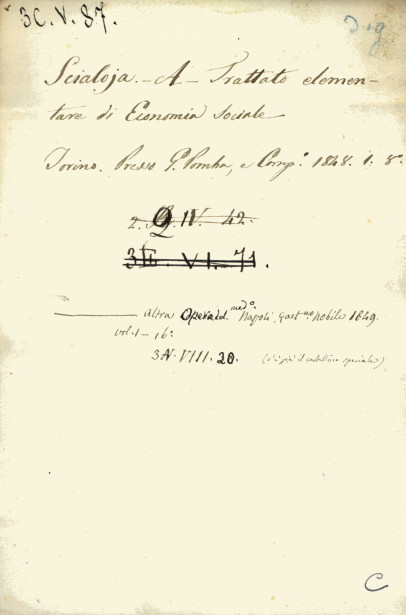 3C.V.87.
Dig
Scialoja. - A - Trattato elemen-
tare di Economia Sociale
Torino. Presso G. Pomba, e Comp.° 1848. 1. 8°
2. Q. IV. 42.
VI. 71.
altra Napoli, gaet.no Nobile 1849.
vol. 1 - 16°
3N. VIII. 20. (v'è già il cartellino speciale)
C